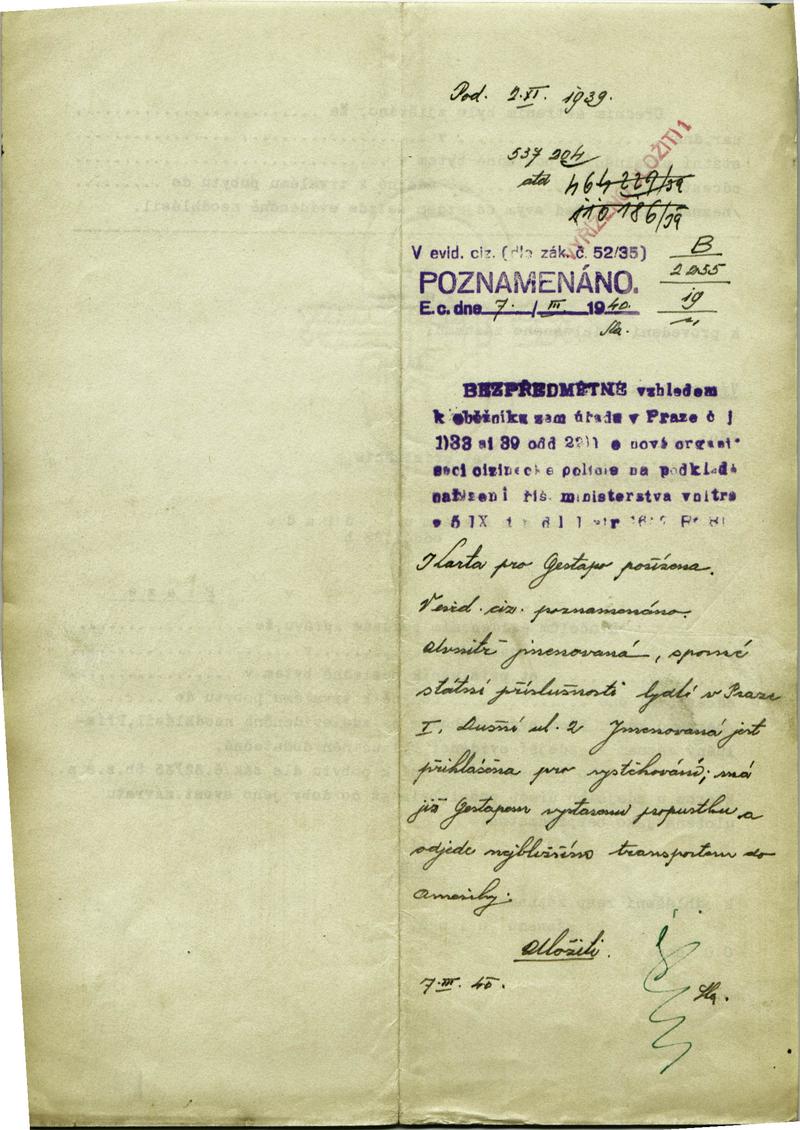 Pod. 2.XI. 1939.
537 204
464 229/39
110 186/39
V evid. ciz. (dle zák. č. 52/35)
POZNAMENÁNO.
E.c. dne 7. / III. 1940.
Sla.
B
2255
19
BEZPŘEDMĚTNÉ vzhledem
k oběžníku zem úřadu v Praze č j
1)33 ai 39 odd 22)) o nové organi
saci cizinecké policie na podkladě
nařízení říš ministerstva vnitra
v 5 IX
Karta pro Gestapo pořízena.
V evid. ciz. poznamenáno.
Uvnitř jmenovaná, sporné
státní příslušnosti bydlí v Praze
I. Dušní ul. 2 Jmenovaná jest
přihlášena pro vystěhování; má
již Gestapem vystavenu propustku a
odjede nejbližším transportem do
Ameriky.
Uložiti.
7.III. 40.
Sla.